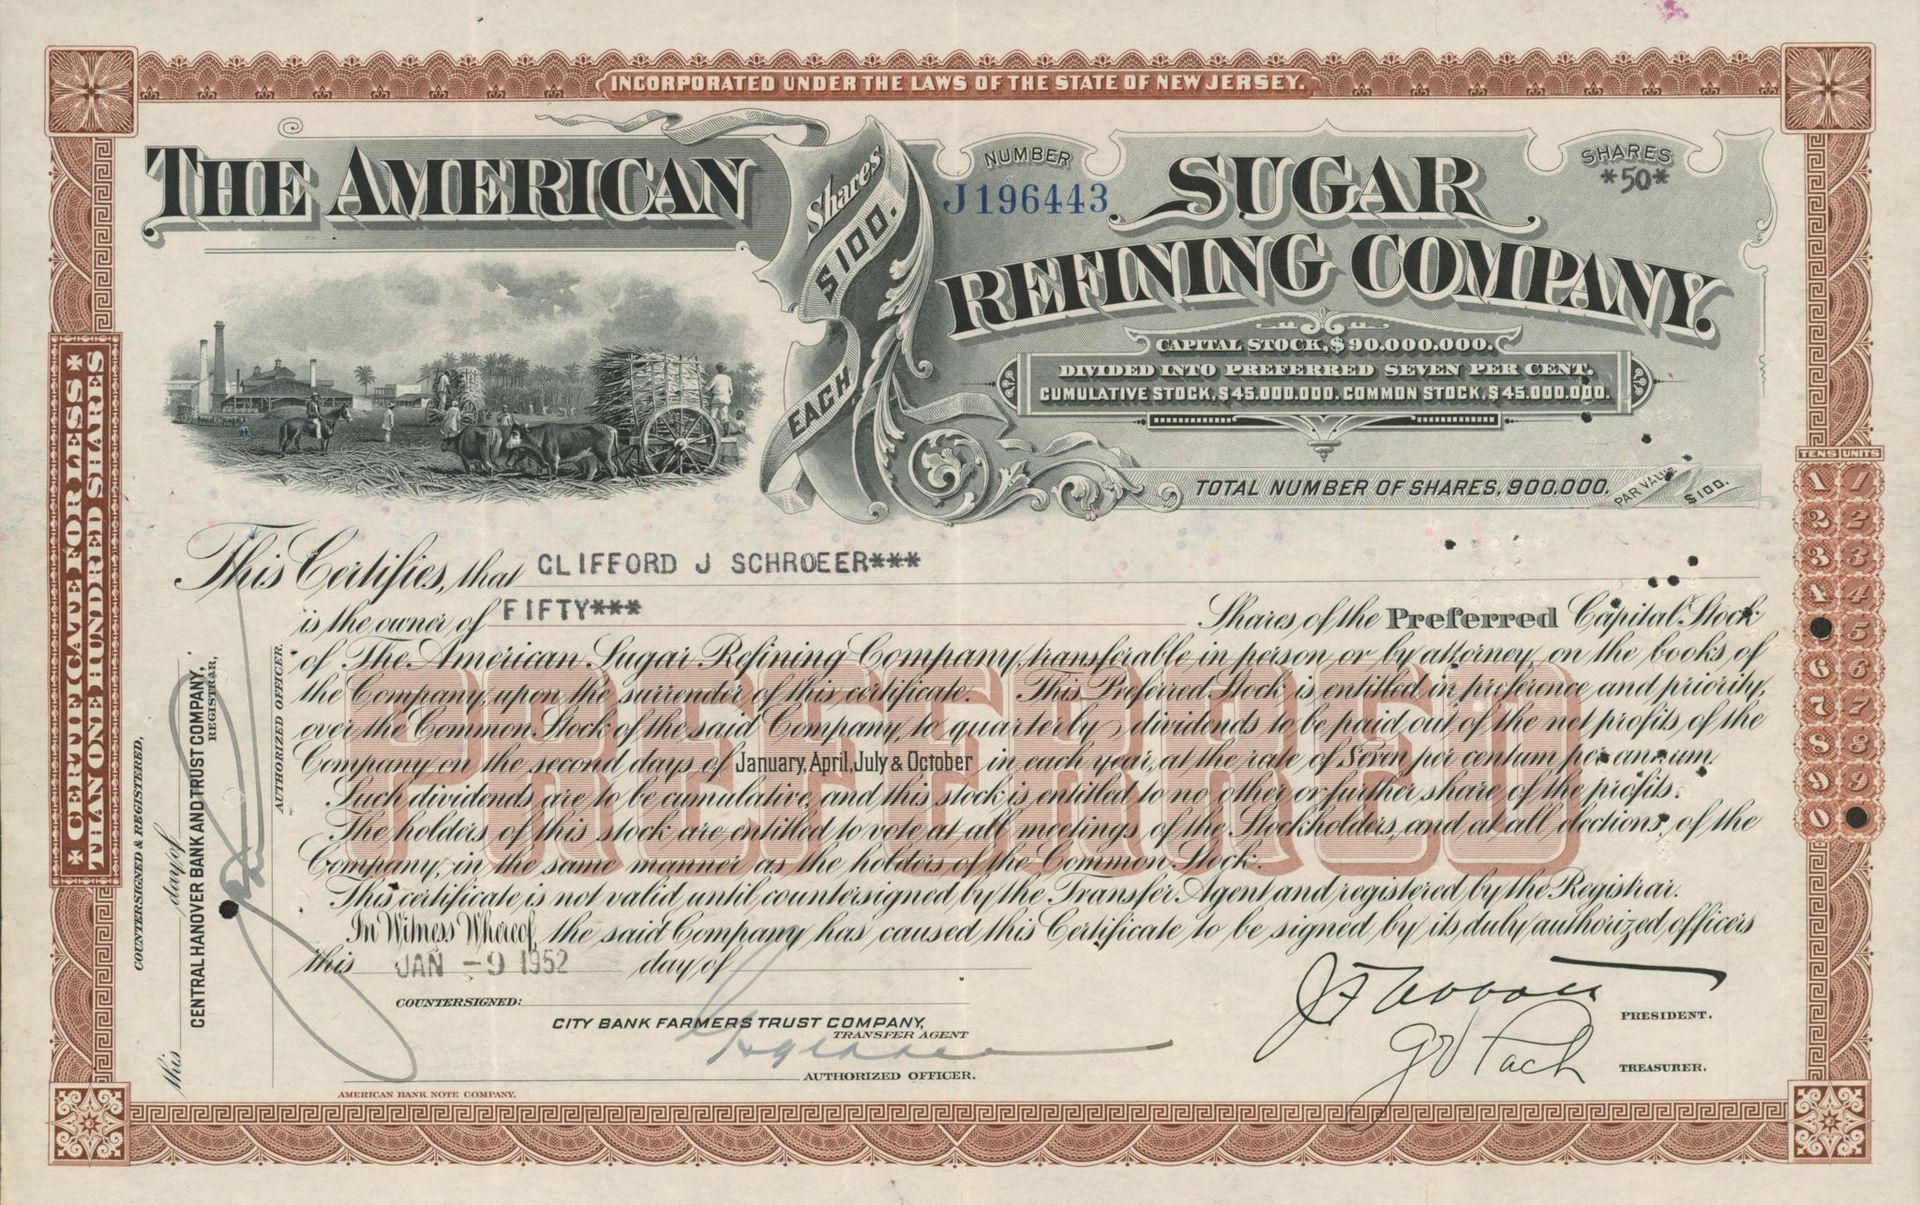 INCORPORATED UNDER THE LAWS OF THE STATE OF NEW JERSEY.
THE AMERICAN
Shares
$100.
EACH
NUMBER
J196443
SUGAR
SHARES
*50*
REFINING COMPANY.
CAPITAL STOCK, $90.000.000.
DIVIDED INTO PREFERRED SEVEN PER CENT.
CUMULATIVE STOCK, $45.000.000. COMMON STOCK, $45.000.000.
TOTAL NUMBER OF SHARES, 900.000.
PAR VALUE $100.
This Certifies, that CLIFFORD J SCHROEER***
is the owner of FIFTY*** Shares of the Preferred Capital Stock
of The American Sugar Refining Company, transferable in person or by attorney, on the books of
the Company, upon the surrender of this certificate. This Preferred Stock is entitled, in preference and priority,
over the Common Stock of the said Company, to quarterly dividends to be paid out of the net profits of the
Company on the second days of January, April, July & October in each year, at the rate of Seven per centum per annum.
Such dividends are to be cumulative, and this stock is entitled to no other or further share of the profits.
The holders of this stock are entitled to vote at all meetings of the Stockholders, and at all elections, of the
Company, in the same manner as the holders of the Common Stock.
This certificate is not valid until countersigned by the Transfer Agent and registered by the Registrar.
In Witness Whereof, the said Company has caused this Certificate to be signed by its duly authorized officers
this JAN -9 1952 day of
PREFERRED
COUNTERSIGNED:
CITY BANK FARMERS TRUST COMPANY,
TRANSFER AGENT
AUTHORIZED OFFICER.
PRESIDENT.
TREASURER.
AMERICAN BANK NOTE COMPANY.
CERTIFICATE FOR LESS
THAN ONE HUNDRED SHARES
COUNTERSIGNED & REGISTERED,
this day of
CENTRAL HANOVER BANK AND TRUST COMPANY,
REGISTRAR,
AUTHORIZED OFFICER.
TENS UNITS
1 1
2 2
3 3
4 4
5
6 6
7 7
8 8
9 9
0